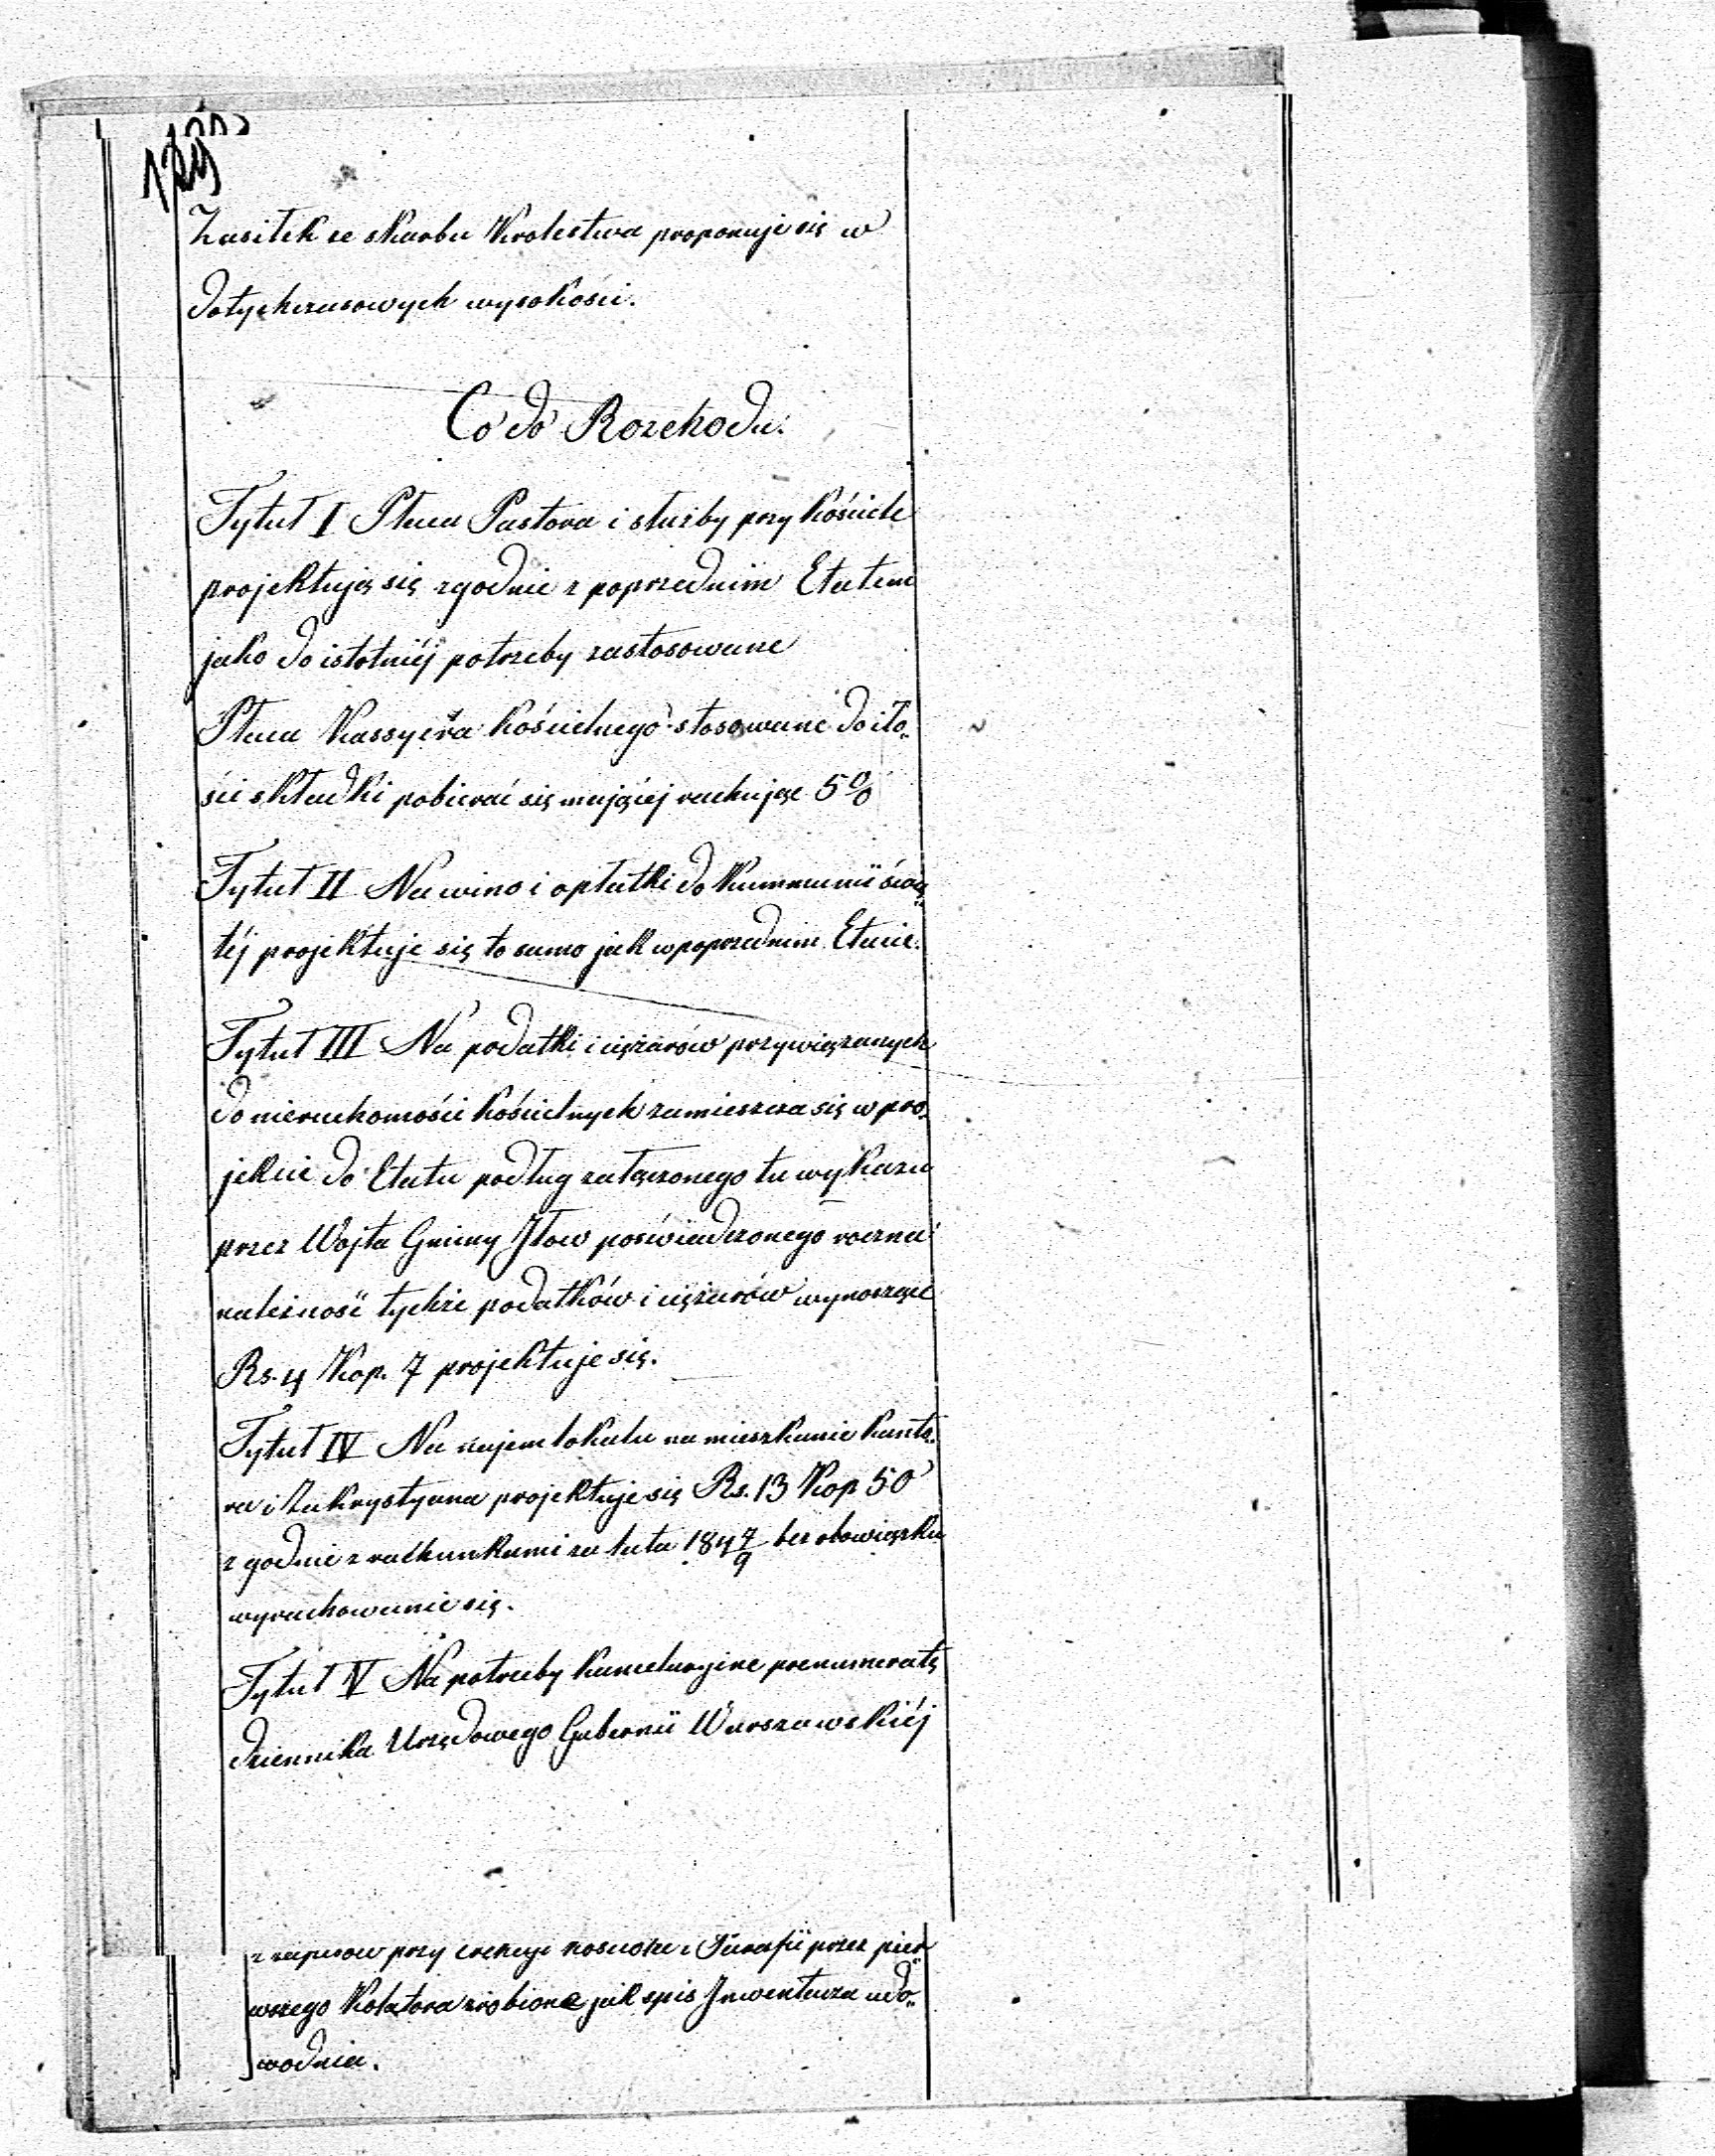 Zasiłek ze skarbu Krolestwa proponuje się w
dotychczasowych wysokości.
Co do Rozchodu.
Tytuł I Płaca Pastora i służby przy kościele
projektuję się zgodnie z poprzednim Etatem
jako do istotniéj potrzeby zastosowane
Płaca Kassyera kościelnego stosowane do ilo„
ści składki pobierać się mającéj rachując 5%
Tytuł II Na wino i opłatki do Kummunii świę„
téj projektuje się to samo jak w poprzednim Etacie.
Tytuł III Na podatki i ciężarów przywiązanych
do nieruchomości kościelnych zamieszcza się w pro„
jekcie do Etatu podług załączonego tu wykazu
przez Wójta Gminy Iłow poświadczonego roczna
należność tychże podatków i ciężarów wynosząca
Rs. 4 Kop. 7 projektuje się.
Tytuł IV Na najem lokalu na mieszkanie kanto„
ra i Zakrystyana projektuje się Rs. 13 Kop 50
zgodnie z rachunkami za lata 184 7/9 bez obowiązku
wyrachowanie się.
Tytuł V Na potrzeby kancelaryine prenumeratę
dziennika Urzędowego Gubernii Warszawskiéj
z zapisow przy erekcyi kosciola i Parafii przez pier„
wszego Kolatora zrobione jak spis Inwentarza udo„
wodnia.